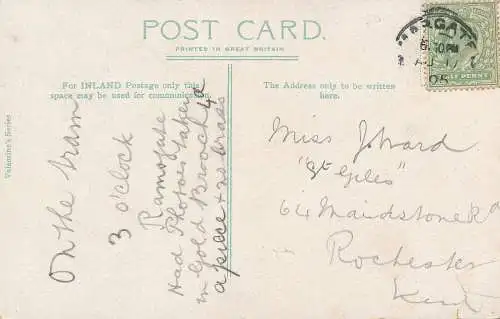 POST CARD.
PRINTED IN GREAT BRITAIN
For INLAND Postage only this
space may be used for communication
The Address only to be written
here.
Valentine's Series
On the tram
3 o'clock
Ramsgate
Had Photoes taken
in Gold Brooch 4d
a piece + as brass
Miss J. Ward
"St Giles"
64 Maidstone Rd
Rochester
Kent
MARGATE
05
HALF PENNY